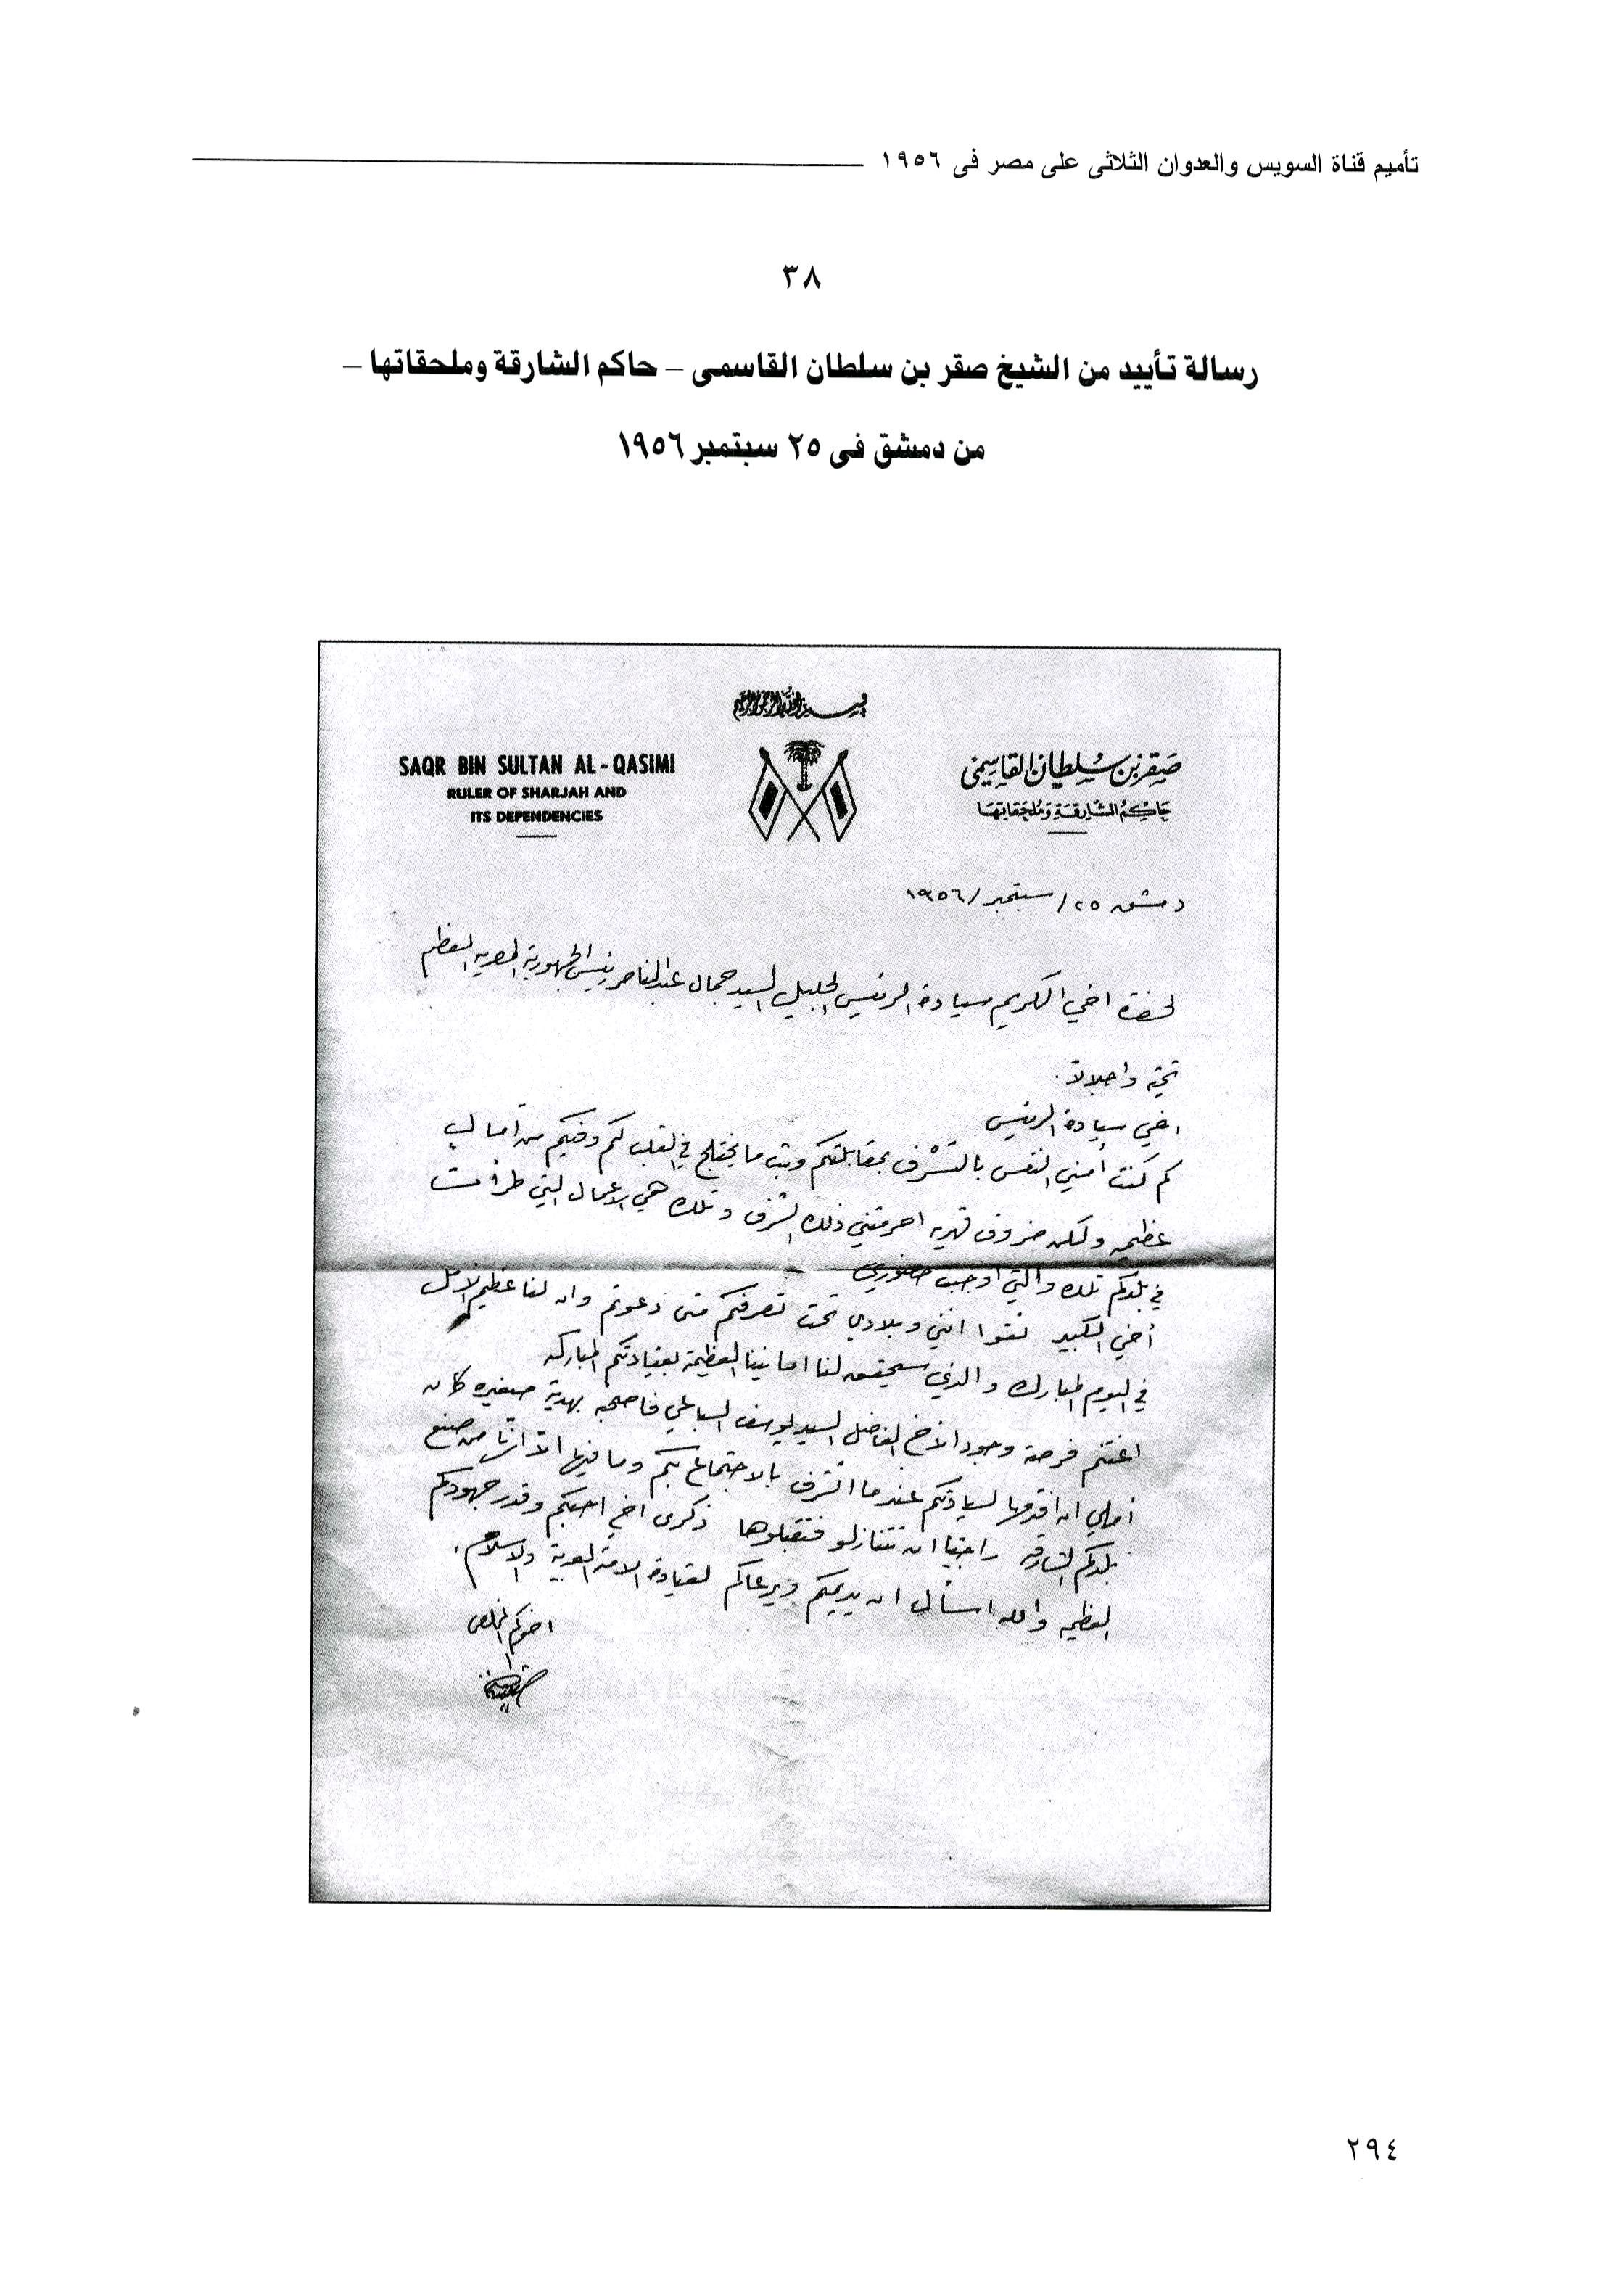 تأميم قناة السويس والعدوان الثلاثى على مصر فى ١٩٥٦
٣٨
رسالة تأييد من الشيخ صقر بن سلطان القاسمى – حاكم الشارقة وملحقاتها –
من دمشق فى ٢٥ سبتمبر ١٩٥٦
بسم الله الرحمن الرحيم
صقر بن سلطان القاسمي
حاكم الشارقة وملحقاتها
SAQR BIN SULTAN AL-QASIMI
RULER OF SHARJAH AND
ITS DEPENDENCIES
دمشق ٢٥/سبتمبر/١٩٥٦
لحضرة اخي الكريم سيادة الرئيس الجليل السيد جمال عبد الناصر رئيس الجمهورية المصريه المعظم
تحيه واجلالا.
اخي سيادة الرئيس
كم كنت أمني النفس بالتشرف بمقابلتكم وبث ما يختلج في القلب لكم وفيكم من آمال
عظيمه ولكن ضروف قهريه احرمتني ذلك الشرف وتلك هي الاعمال التي طرأت
في بلدكم تلك والتي اوجبت حضوري
أخي الكبير ثقوا انني وبلادي تحت تصرفكم متى دعوتم وان لنا عظيم الامل
في اليوم المبارك والذي سيحقق لنا امانينا العظيمة بقيادتكم المباركه
اغتنم فرصة وجود الاخ الفاضل السيد يوسف السباعي فاصحبه بهدية صغيره كان
املي ان اقدمها لسيادتكم عندما اتشرف بالاجتماع بكم وما فيها الا انها من صنع
بلدكم الشارقه راجيا ان تتنازلو فتقبلوها ذكرى اخ احبكم وقدر جهودكم
العظيمه والله اسأل ان يديمكم ويرعاكم لقيادة الامة العربية والاسلام.
اخوكم المخلص
٢٩٤